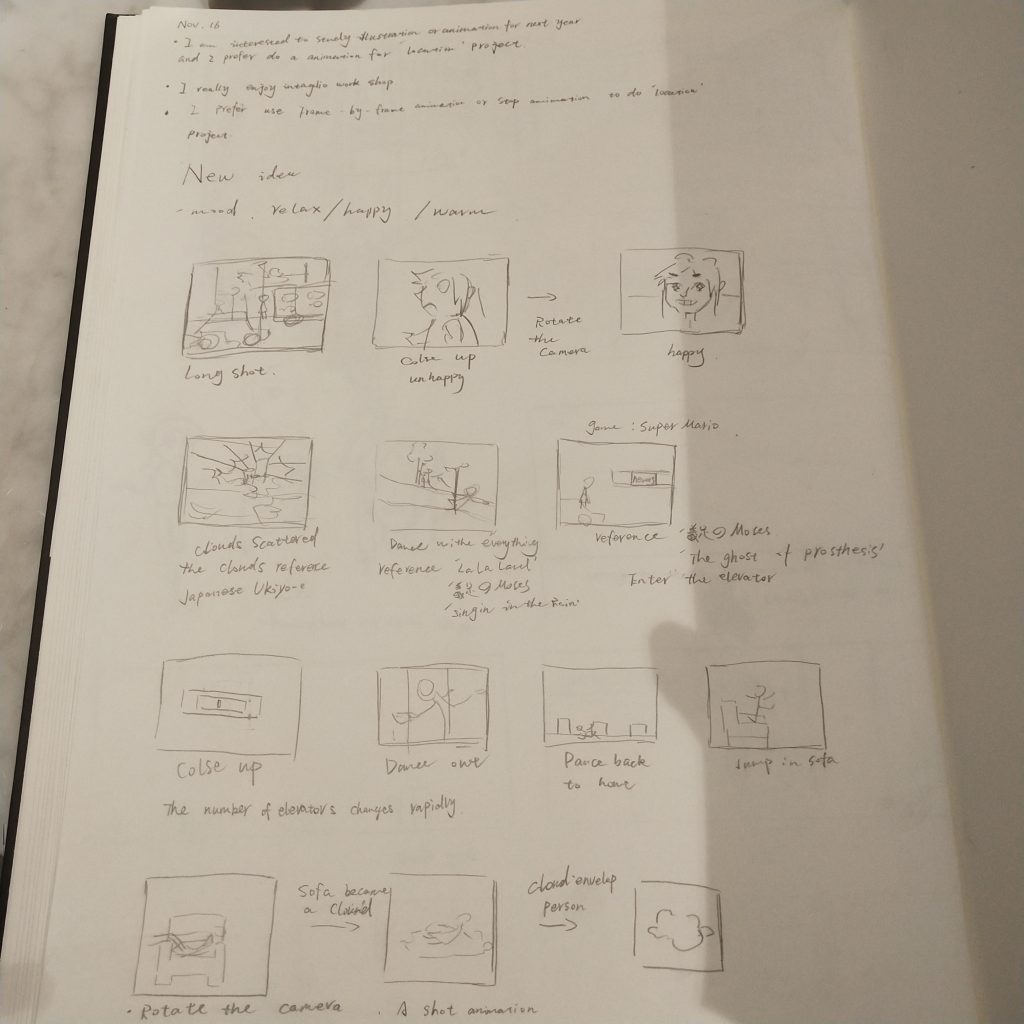 Nov. 16
• I am interested to study illustration or animation for next year
and I prefer do a animation for 'location' project.
• I really enjoy intaglio work shop
• I prefer use frame-by-frame animation or stop animation to do 'location'
project.
New idea
- mood. relax/happy /warm
Long shot.
Colse up
unhappy
Rotate
the
Camera
happy.
game : Super Mario
Clouds Scattered
the clouds reference
Japanese Ukiyo-e
Dance withe everything
reference 'La La Land'
'義足のMoses
'singin in the Rain'
reference '義足のMoses
'The ghost of prosthesis'
Enter the elevator
Colse up
Dance out
Dance back
to home
Jump in sofa
The number of elevators changes rapidly.
Sofa became
a Cloud
Cloud envelop
person
• Rotate the camera . A shot animation